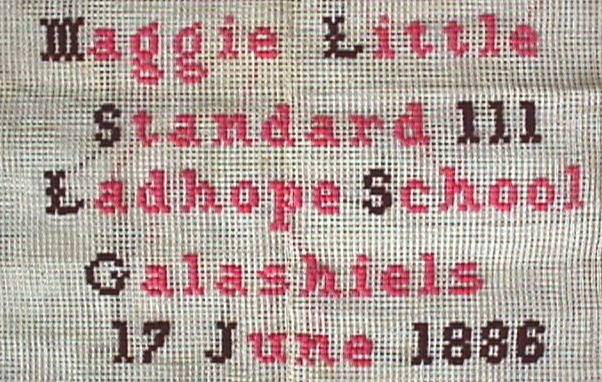 Maggie Little
Standard 111
Ladhope School
Galashiels
17 June 1886